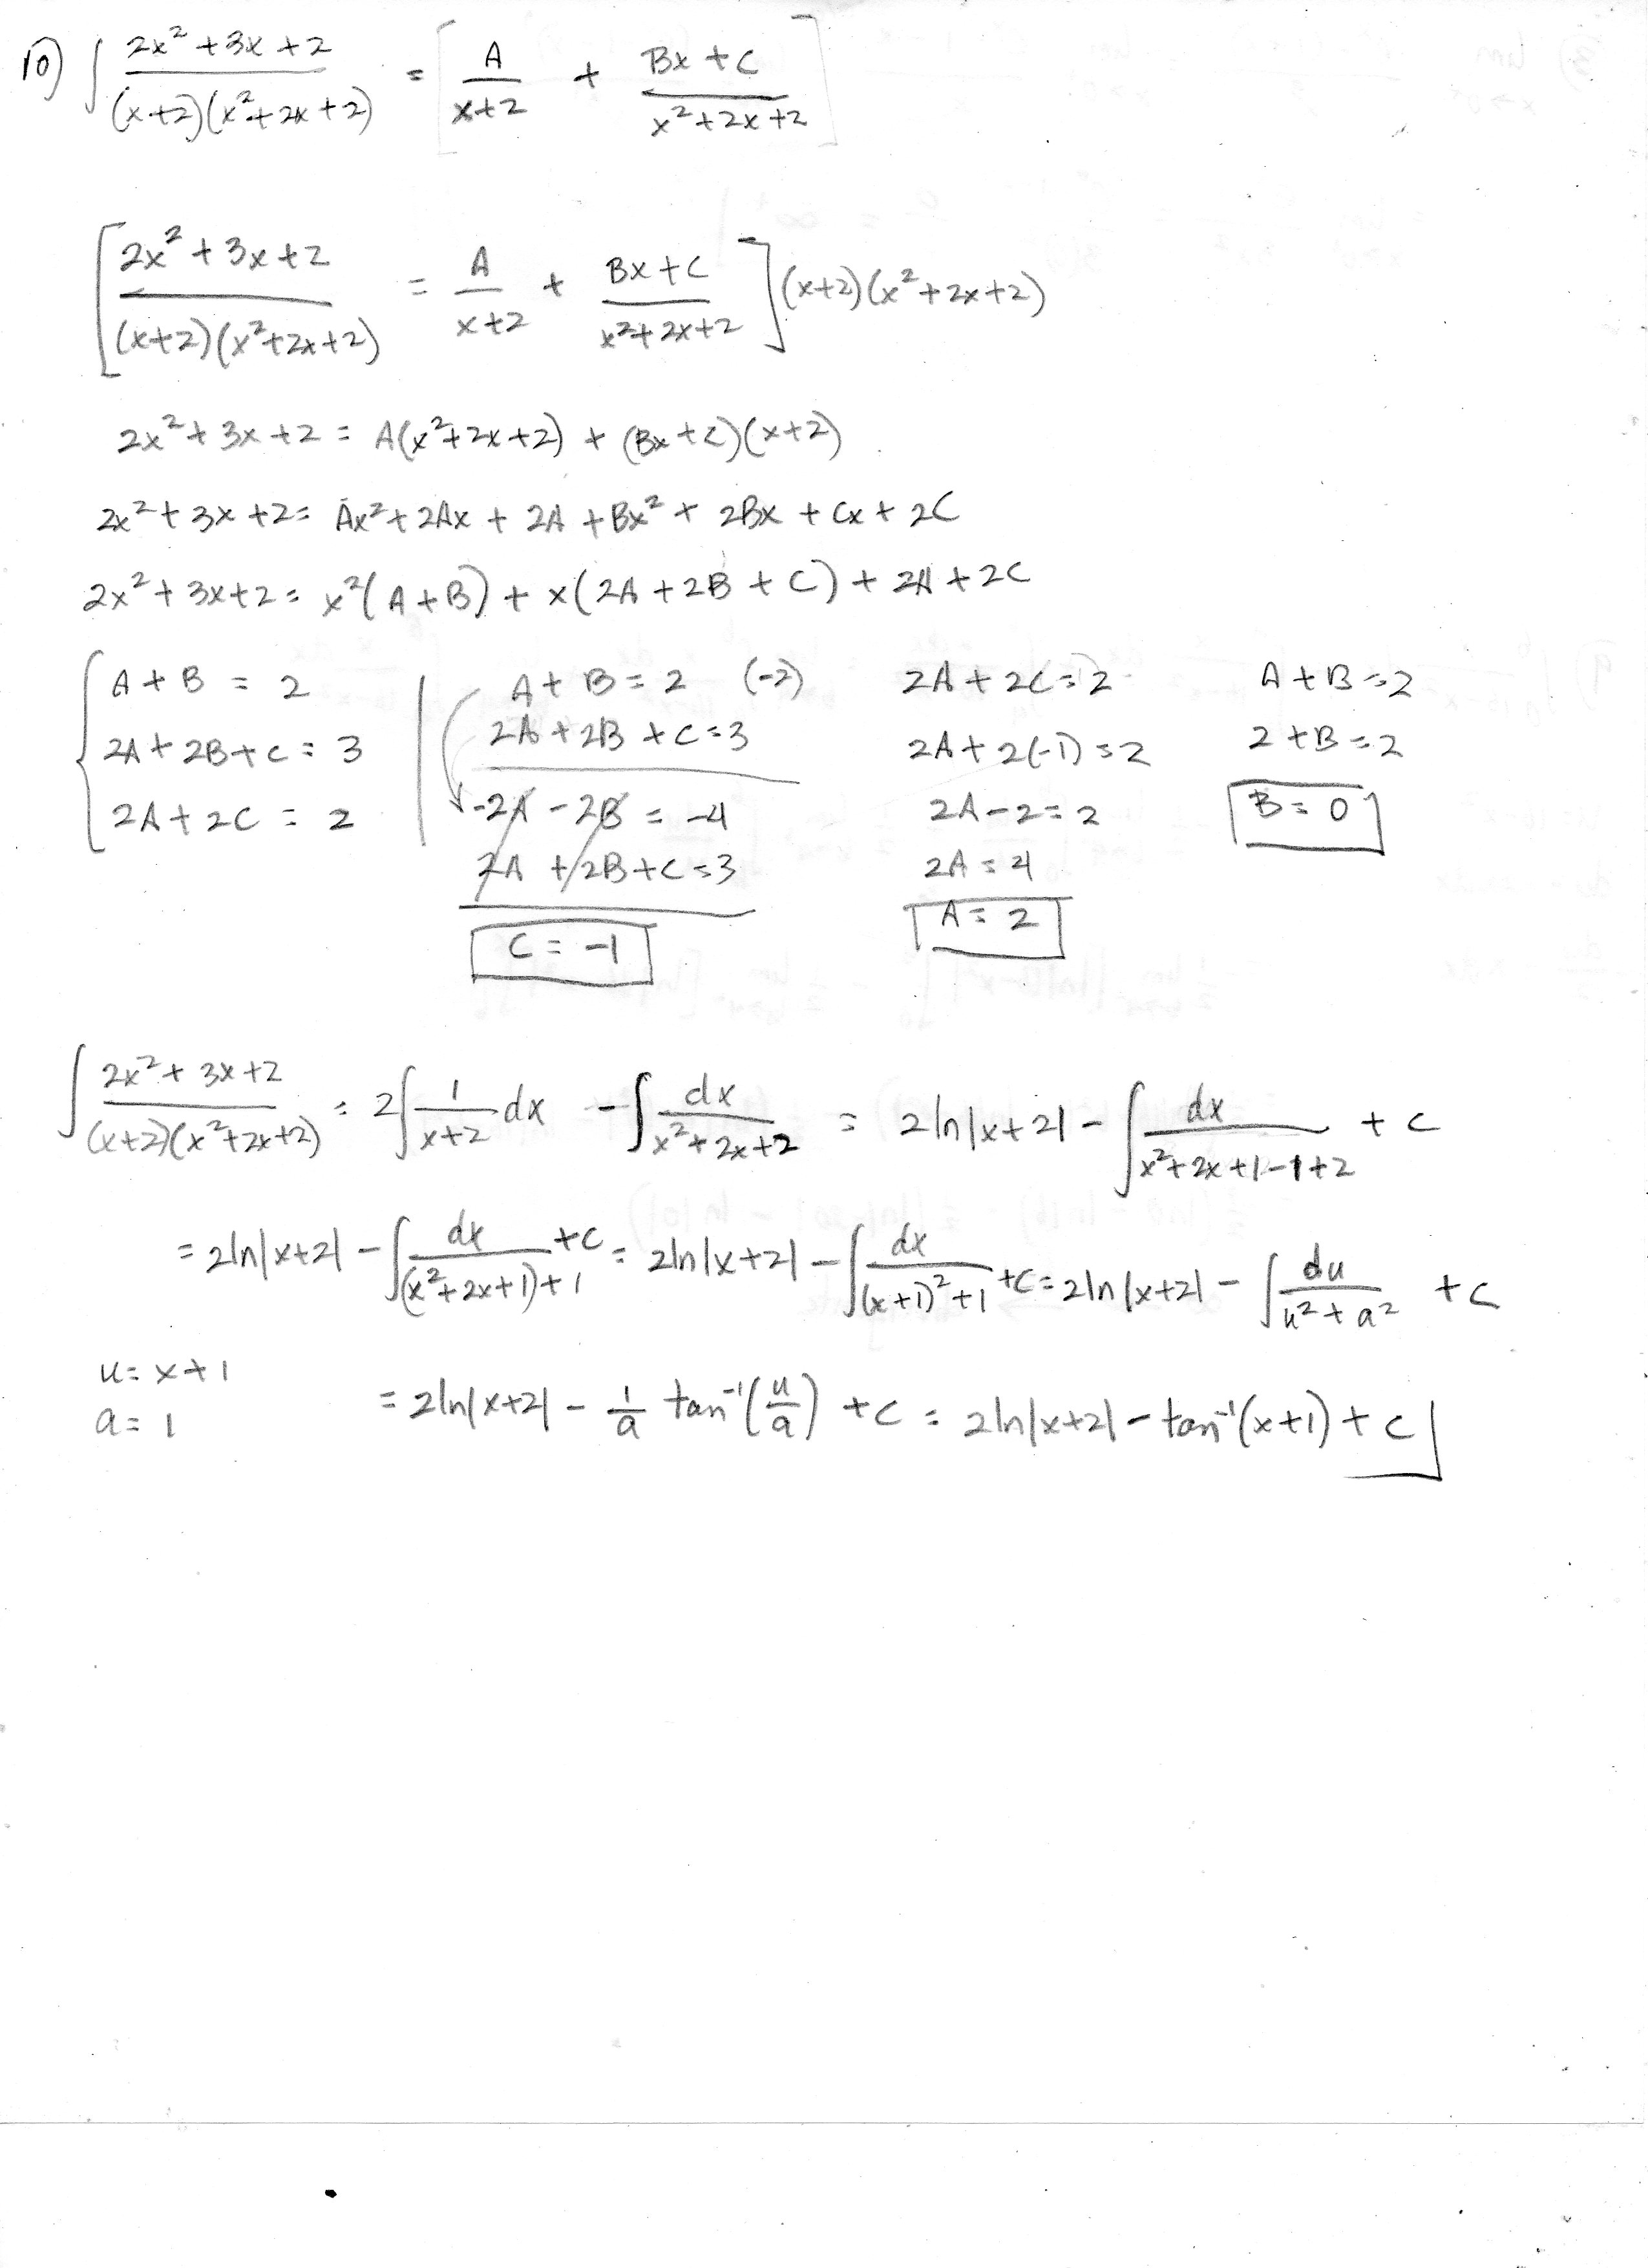 10) ∫ (2x² + 3x + 2)/((x+2)(x²+2x+2)) = [A/(x+2) + (Bx + C)/(x²+2x+2)]
[(2x² + 3x + 2)/((x+2)(x²+2x+2)) = A/(x+2) + (Bx + C)/(x²+2x+2)] (x+2)(x²+2x+2)
2x² + 3x + 2 = A(x²+2x+2) + (Bx + C)(x+2)
2x² + 3x + 2 = Ax² + 2Ax + 2A + Bx² + 2Bx + Cx + 2C
2x² + 3x + 2 = x²(A+B) + x(2A + 2B + C) + 2A + 2C
A + B = 2
2A + 2B + C = 3
2A + 2C = 2
A + B = 2 (-2)
2A + 2B + C = 3
-2A - 2B = -4
2A + 2B + C = 3
C = -1
2A + 2C = 2
2A + 2(-1) = 2
2A - 2 = 2
2A = 4
A = 2
A + B = 2
2 + B = 2
B = 0
∫ (2x² + 3x + 2)/((x+2)(x²+2x+2)) = 2∫ 1/(x+2) dx - ∫ dx/(x²+2x+2) = 2ln|x+2| - ∫ dx/(x²+2x+1-1+2) + C
= 2ln|x+2| - ∫ dx/((x²+2x+1)+1) + C = 2ln|x+2| - ∫ dx/((x+1)²+1) + C = 2ln|x+2| - ∫ du/(u²+a²) + C
u = x + 1
a = 1
= 2ln|x+2| - 1/a tan⁻¹(u/a) + C = 2ln|x+2| - tan⁻¹(x+1) + C